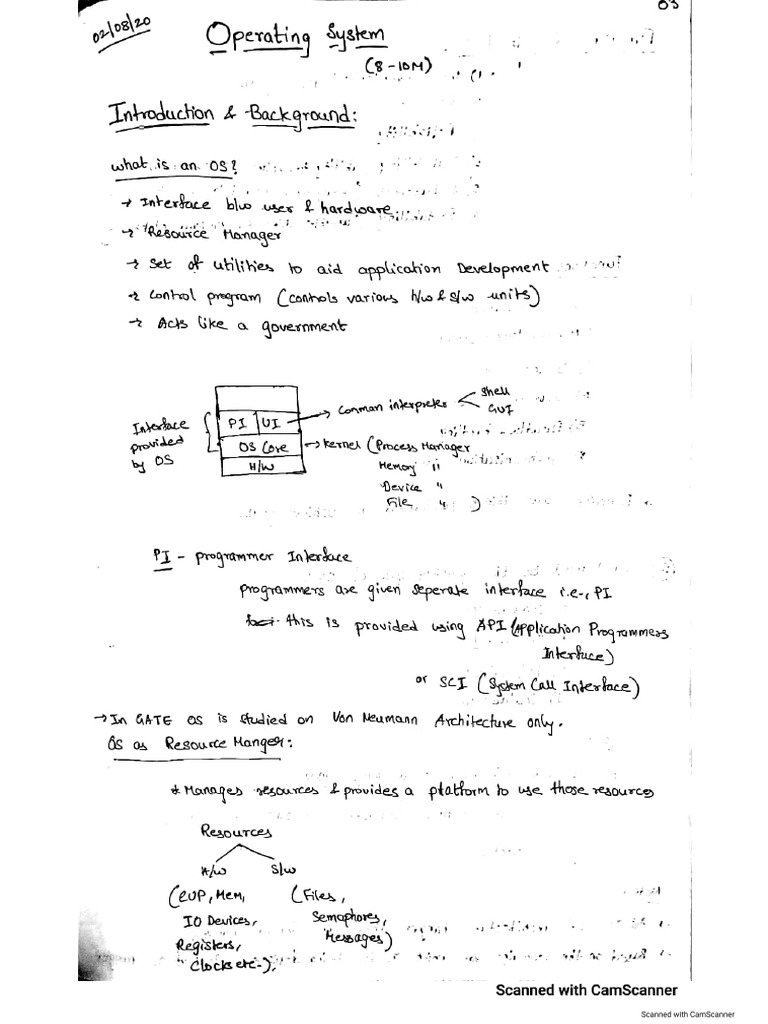 03
02/08/20
Operating System
(8-10M)
Introduction & Background:
what is an OS?
→ Interface b/w user & hardware.
→ "Resource Manager
→ Set of utilities to aid application Development
→ Control program (controls various h/w & s/w units)
→ Acts like a government
Interface
provided
by OS
PI | UI
→ Comman interpreter
Shell
GUI
OS Core
→ Kernel (Process Manager
H/W
Memory "
Device "
File " )
PI - programmer Interface
programmers are given seperate interface i.e., PI
this is provided using API (Application Programmers
Interface)
or SCI (System Call Interface)
→ In GATE OS is studied on Von Neumann Architecture only.
OS as Resource Manger:
* Manages resources & provides a platform to use those resources
Resources
H/W S/W
(CUP, Mem, (Files,
IO Devices, Semaphores,
Registers, Messages)
Clocks etc-),
Scanned with CamScanner
Scanned with CamScanner